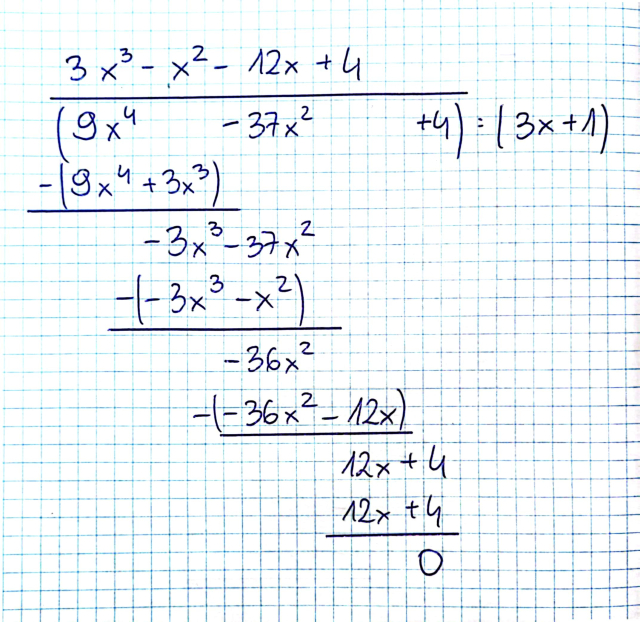 3x³ - x² - 12x + 4
(9x⁴ - 37x² +4) : (3x+1)
-(9x⁴ + 3x³)
-3x³ - 37x²
-(-3x³ - x²)
-36x²
-(-36x² - 12x)
12x + 4
12x + 4
0